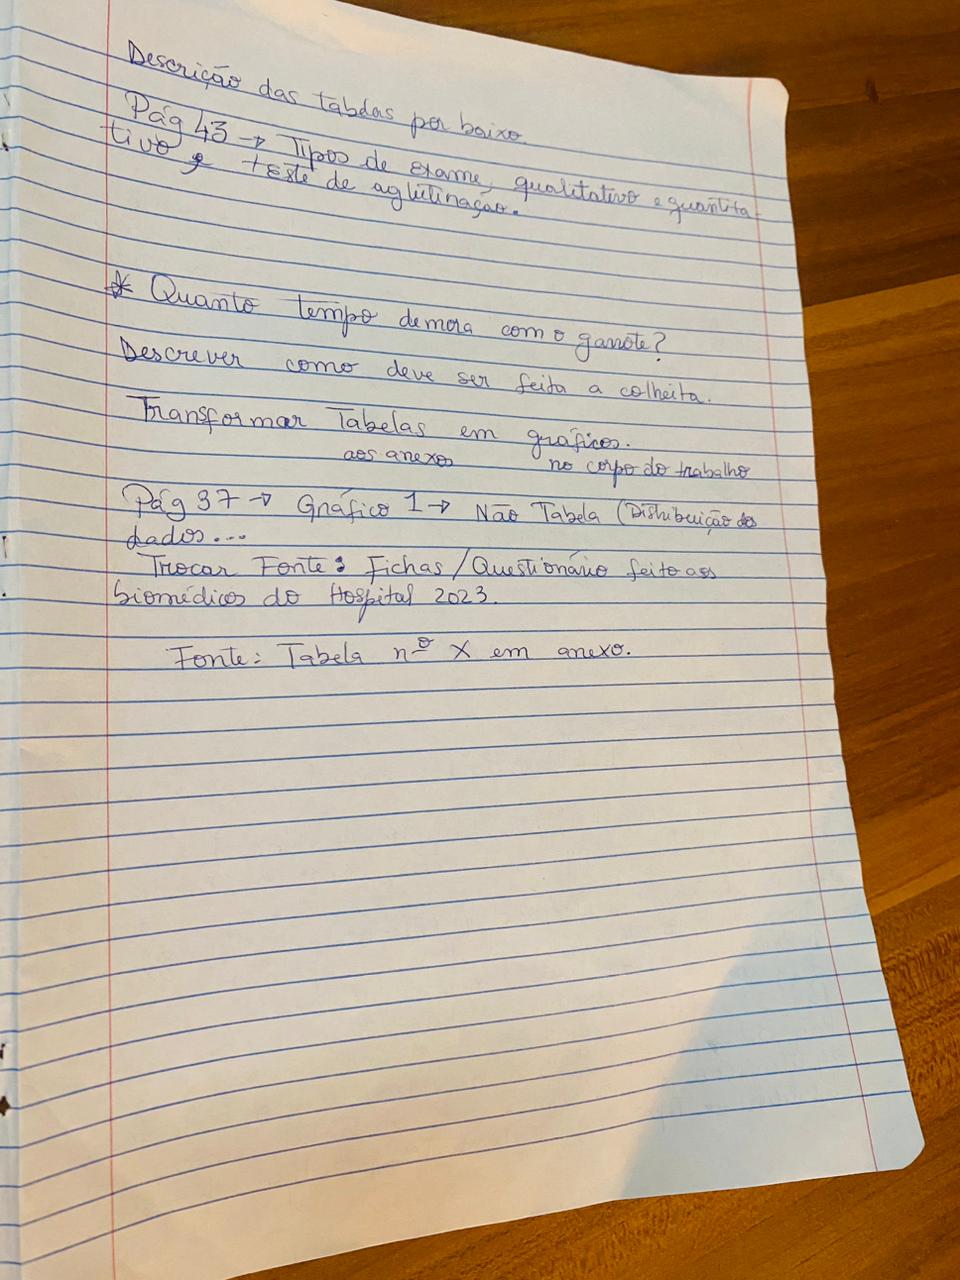 Descrição das tabelas por baixo.
Pág 43 → Tipos de exame, qualitativo e quantita-
tivo e teste de aglutinação.
* Quanto tempo demora com o garrote?
Descrever como deve ser feita a colheita.
Transformar Tabelas em gráficos.
aos anexos no corpo do trabalho
Pág 37 → Gráfico 1 → Não Tabela (Distribuição dos
dados...
Trocar Fonte: Fichas/Questionário feito aos
biomédicos do Hospital 2023.
Fonte: Tabela nº X em anexo.